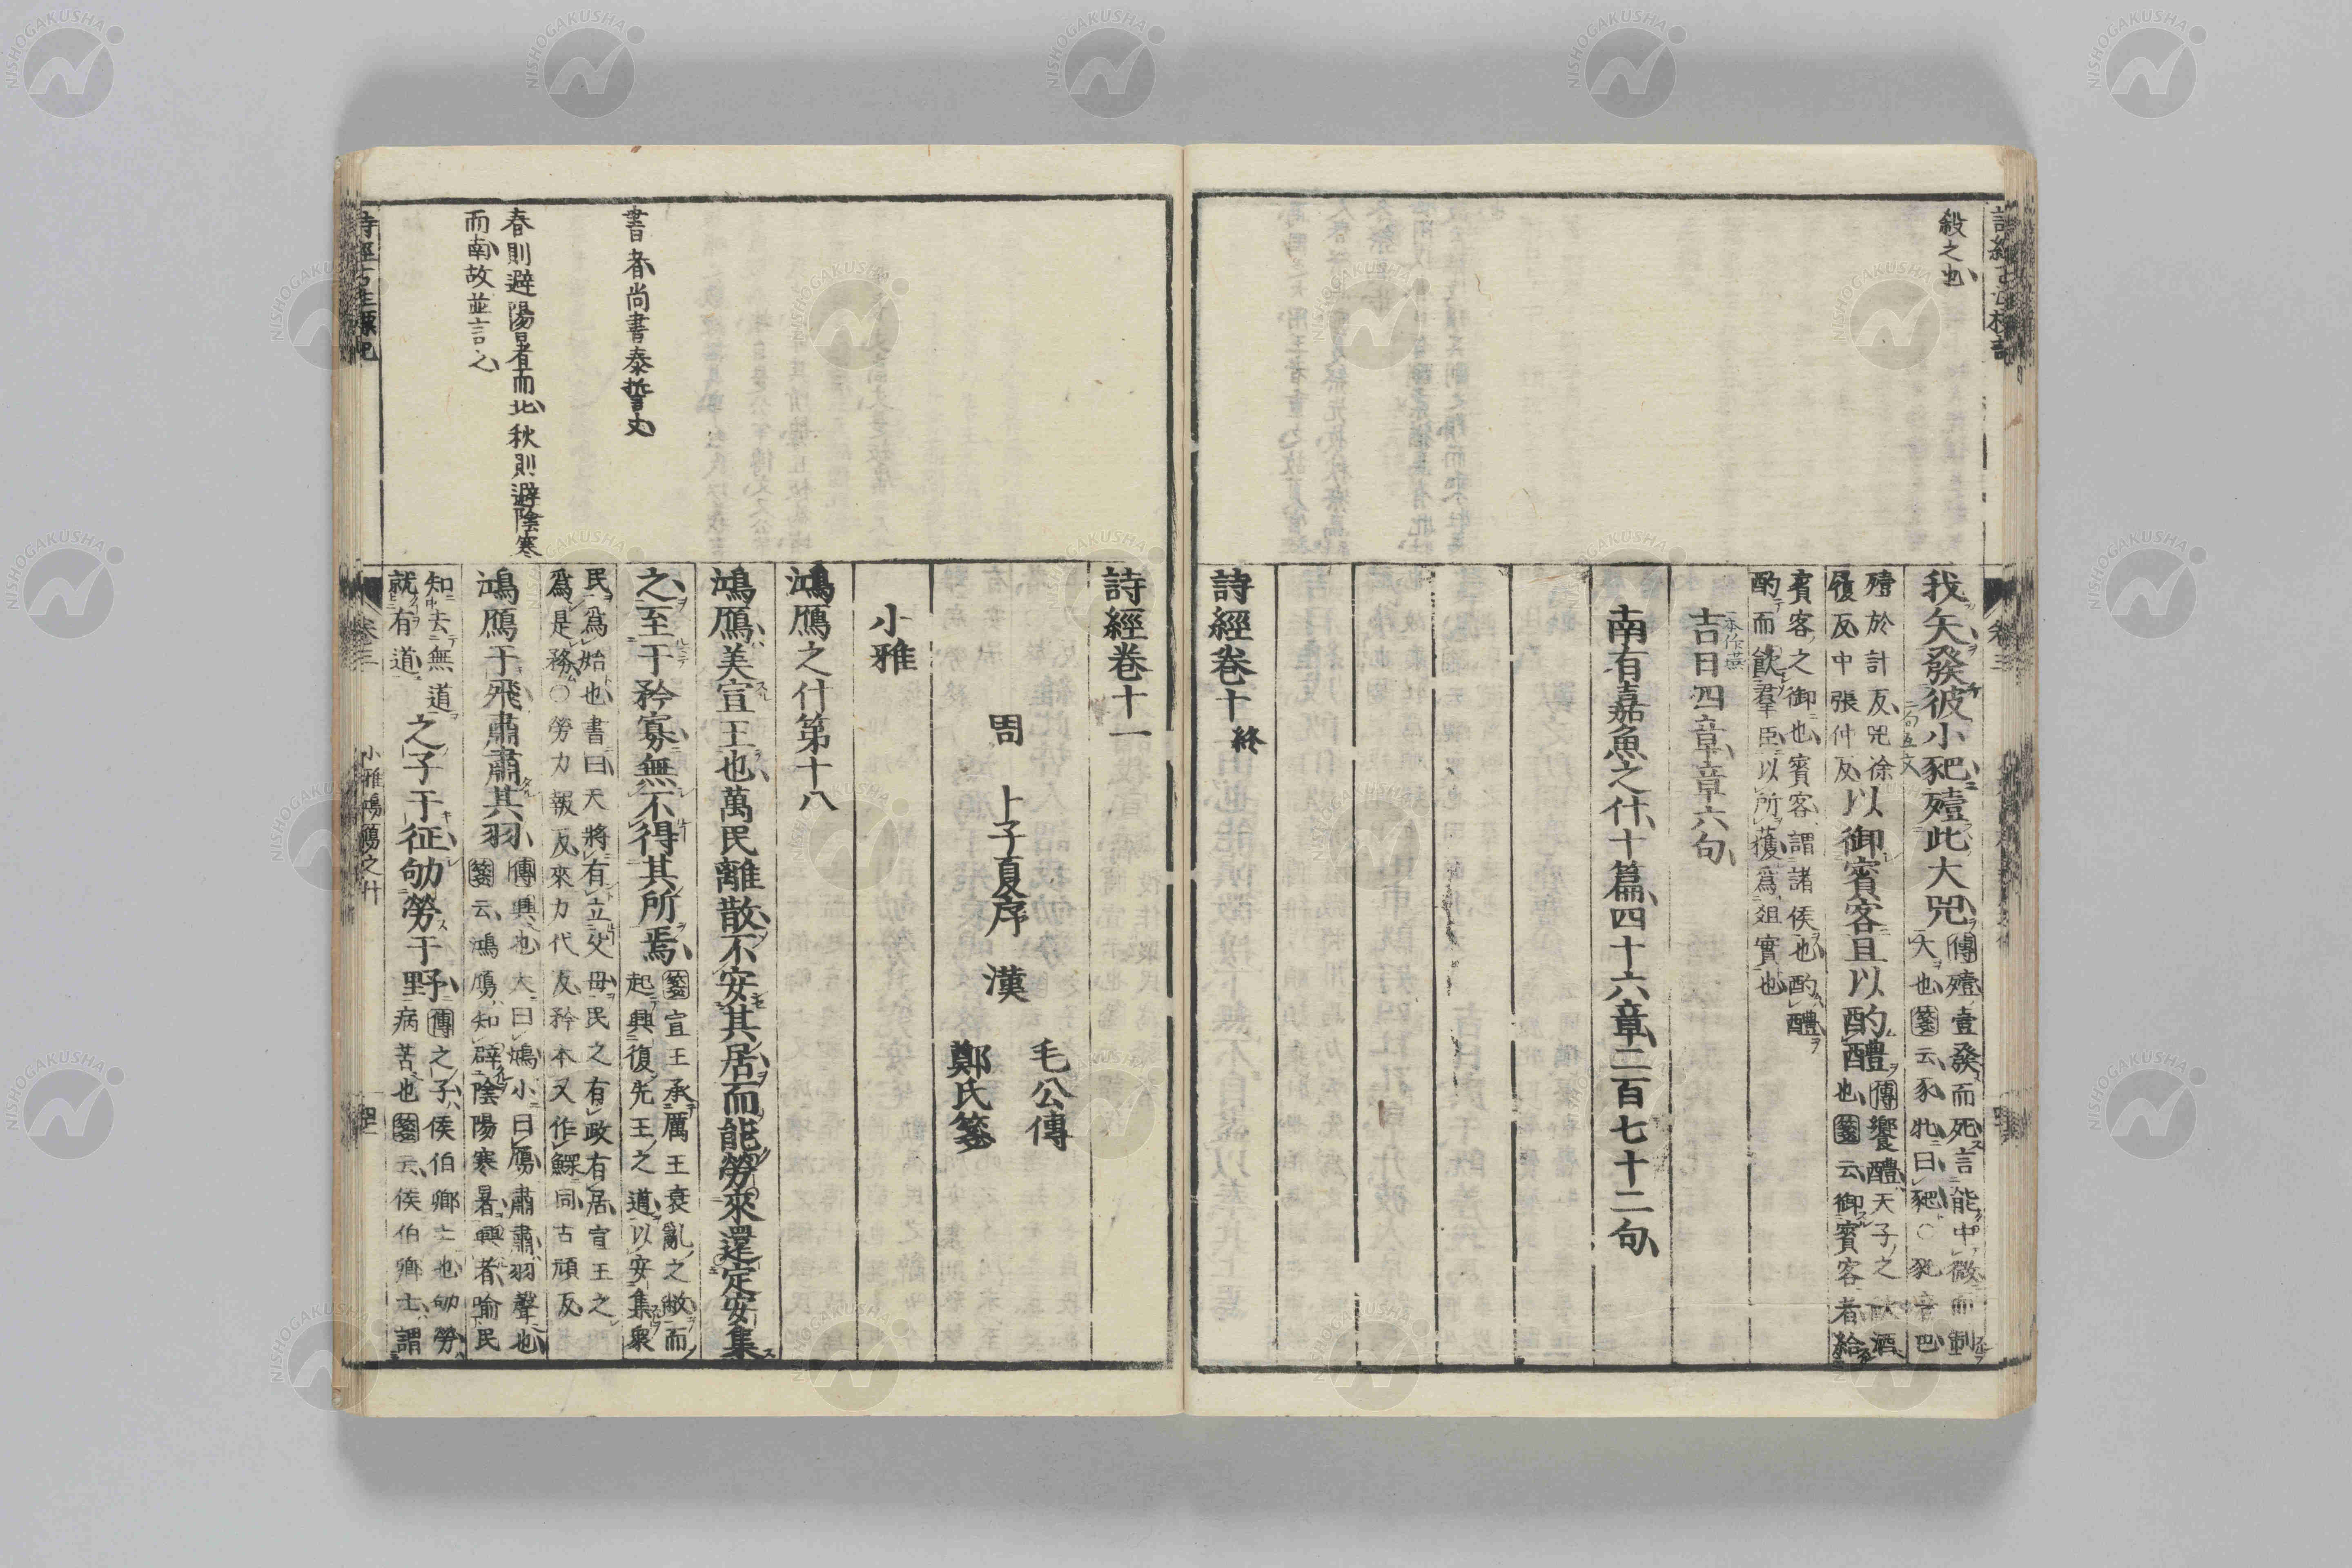 殺之也
我矢發彼小豝殪此大兕
傳殪壹發而死言能中微而制
大也箋云豕牝曰豝○豝音巴
殪於計反兕徐
履反中張仲反
以御賓客且以酌醴
傳饗醴天子之飲酒
也箋云御賓客者給
賓客之御也賓客謂諸侯也酌醴
酌而飲羣臣以所獲爲俎實也
吉日四章章六句
南有嘉魚之什十篇四十六章二百七十二句
詩經卷十終
書者尚書泰誓文
春則避陽暑而北秋則避陰寒
而南故並言之
詩經卷十一
周 卜子夏序 漢
毛公傳
鄭氏箋
小雅
鴻鴈之什第十八
鴻鴈美宣王也萬民離散不安其居而能勞來還定安集
之至于矜寡無不得其所焉
箋宣王承厲王衰亂之敝而
起興復先王之道以安集衆
民爲始也書曰天將有立父母民之有政有居宣王之
爲是務○勞力報反來力代反矜本又作鰥同古頑反
鴻鴈于飛肅肅其羽
傳興也大曰鴻小曰鴈肅肅羽聲也
箋云鴻鴈知辟陰陽寒暑興者喻民
知去無道
就有道
之子于征劬勞于野
傳之子侯伯卿士也劬勞
病苦也箋云侯伯卿士謂
詩經古注標記
卷三
小雅鴻鴈之什
NISHOGAKUSHA